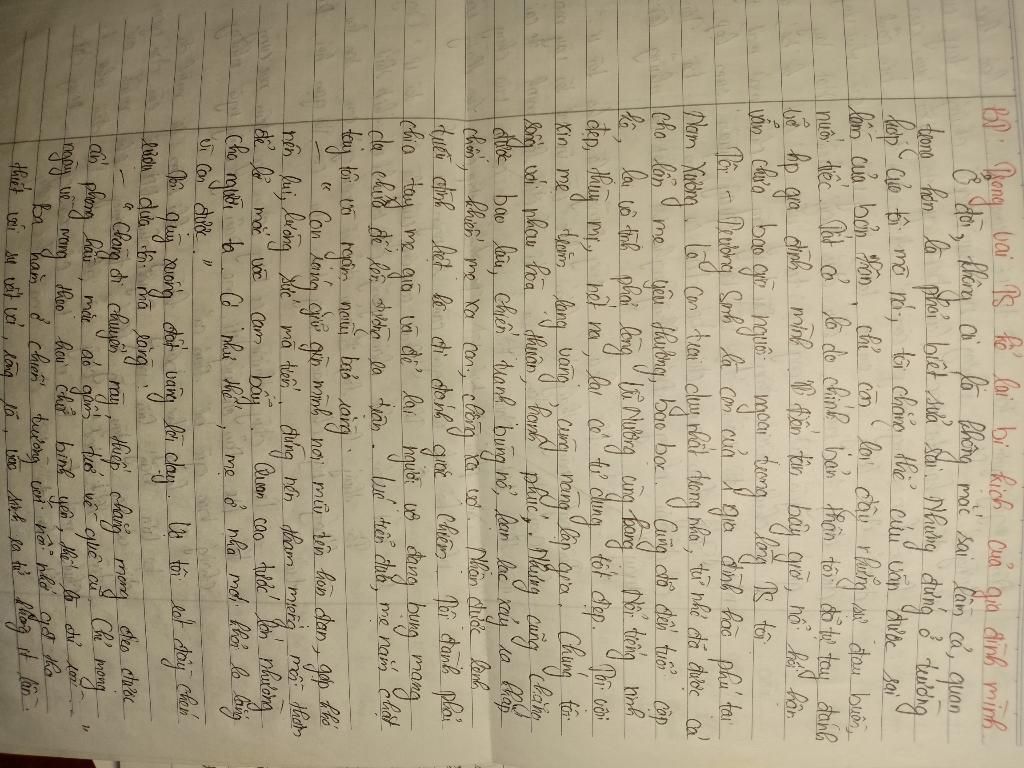 Đề: Đóng vai TS kể lại bi kịch của gia đình mình.
Ở đời, không ai là không mắc sai lầm cả, quan
trọng hơn là phải biết sửa sai. Nhưng đáng ở trường
hợp của tôi, mỗi nỗi, tôi chẳng thể cứu vãn được sai
lầm của bản thân, chỉ còn lại đầy những sự đau buồn,
nuối tiếc. Tất cả là do chính bản thân tôi đã tự tay đánh
vỡ hp gia đình mình. Vì đến tận bây giờ, nỗi hối hận
vẫn chưa bao giờ người ngoai trong lòng TS tôi.
Tôi - Trương Sinh là con của 1 gia đình hào phú tại
Nam Xương. Là con trai duy nhất trong nhà, từ nhỏ đã được cả
cha lẫn mẹ yêu thương, bao bọc. Cũng đã đến tuổi cập
kê, lại vô tình phải lòng Vũ Nương cùng làng. Nổi tiếng xinh
đẹp, thùy mị, nết na, lại có tư dung tốt đẹp. Tôi với
xin mẹ trăm lạng vàng cưới nàng lập gia. Chúng tôi
sống với nhau hòa thuận, hạnh phúc. Nhưng cũng chẳng
được bao lâu, chiến tranh bùng nổ, loạn lạc xảy ra khắp
chốn, khiến mẹ xa con, chồng xa vợ. Nhận được lệnh
tuyển đinh bắt lính đi đánh giặc Chiêm. Tôi đành phải
chia tay mẹ già và để lại người vợ đang bụng mang
dạ chửa để lên đường ra trận. Lúc tiễn đưa, mẹ nắm chặt
tay tôi và ngậm ngùi bảo rằng:
- " Con ráng giữ gìn mình nơi mũi tên hòn đạn, gặp khó
nên lui, lường sức mà tiến, đừng nên tham miếng mồi thơm
để lỡ mắc vào cạm bẫy. Quan cao tước lớn nhường
cho người ta. Có như thế, mẹ ở nhà mới khỏi lo lắng
vì con được. "
Tôi quỳ xuống đất vâng lời dạy. Vợ tôi rót đầy chén
rượu đưa tôi mà rằng:
- " Chàng đi chuyến này, thiếp chẳng mong đeo được
ấn phong hầu, mặc áo gấm trở về quê cũ. Chỉ mong
ngày về mang theo hai chữ bình yên, thế là đủ rồi... "
Ra hàn ở chiến trường với nỗi nhớ gia tha
thiết với sự vất vả, lăng là, vào sinh ra tử không ít lần.